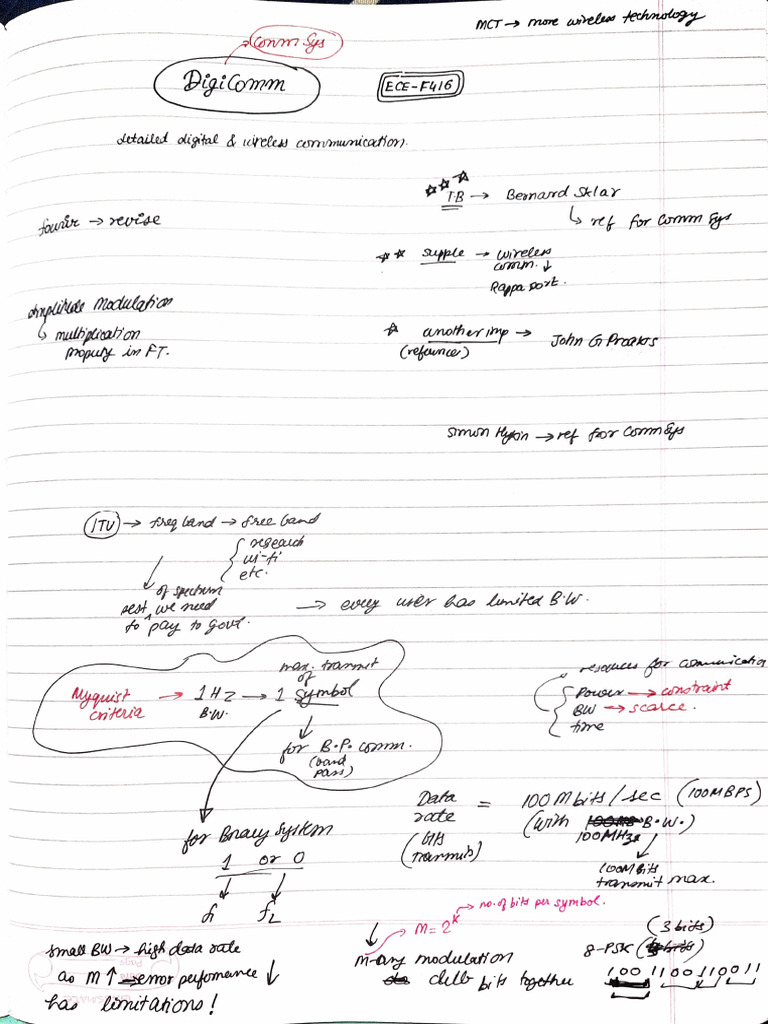 MCT → more wireless technology
→ Comm Sys
DigiComm
ECE-F416
detailed digital & wireless communication.
☆☆☆ TB → Bernard Sklar
↳ ref for Comm Sys
fourir → revise
☆☆ supple → wireless
comm. ↓
Rappaport.
Amplitude Modulation
↳ multiplication
property in FT.
☆ another imp → John G Proakis
(refernce)
Simon Hykin → ref for Comm Sys
ITU → freq band → free band
research
wi-fi
etc.
of spectrum
rest ^ we need
to pay to Govt.
→ every user has limited B.W.
Nyquist
criteria
→ 1 Hz → 1 symbol
B.W.
max. transmit
of
for B.P. comm.
(band
pass)
resources for communication
Power → constraint
BW → scarce.
time
for Binary System
1 or 0
f₁ f₂
Data
rate
= 100 Mbits/sec (100MBPS)
(with B.W.)
100MHz
100Mbits
transmit max.
M = 2^k → no. of bits per symbol.
M-ary modulation
bits together
small BW → high data rate
as M ↑ → error perfomance ↓
has limitations!
(3 bits)
8-PSK
1 0 0 1 1 0 0 1 1 0 0 1 1